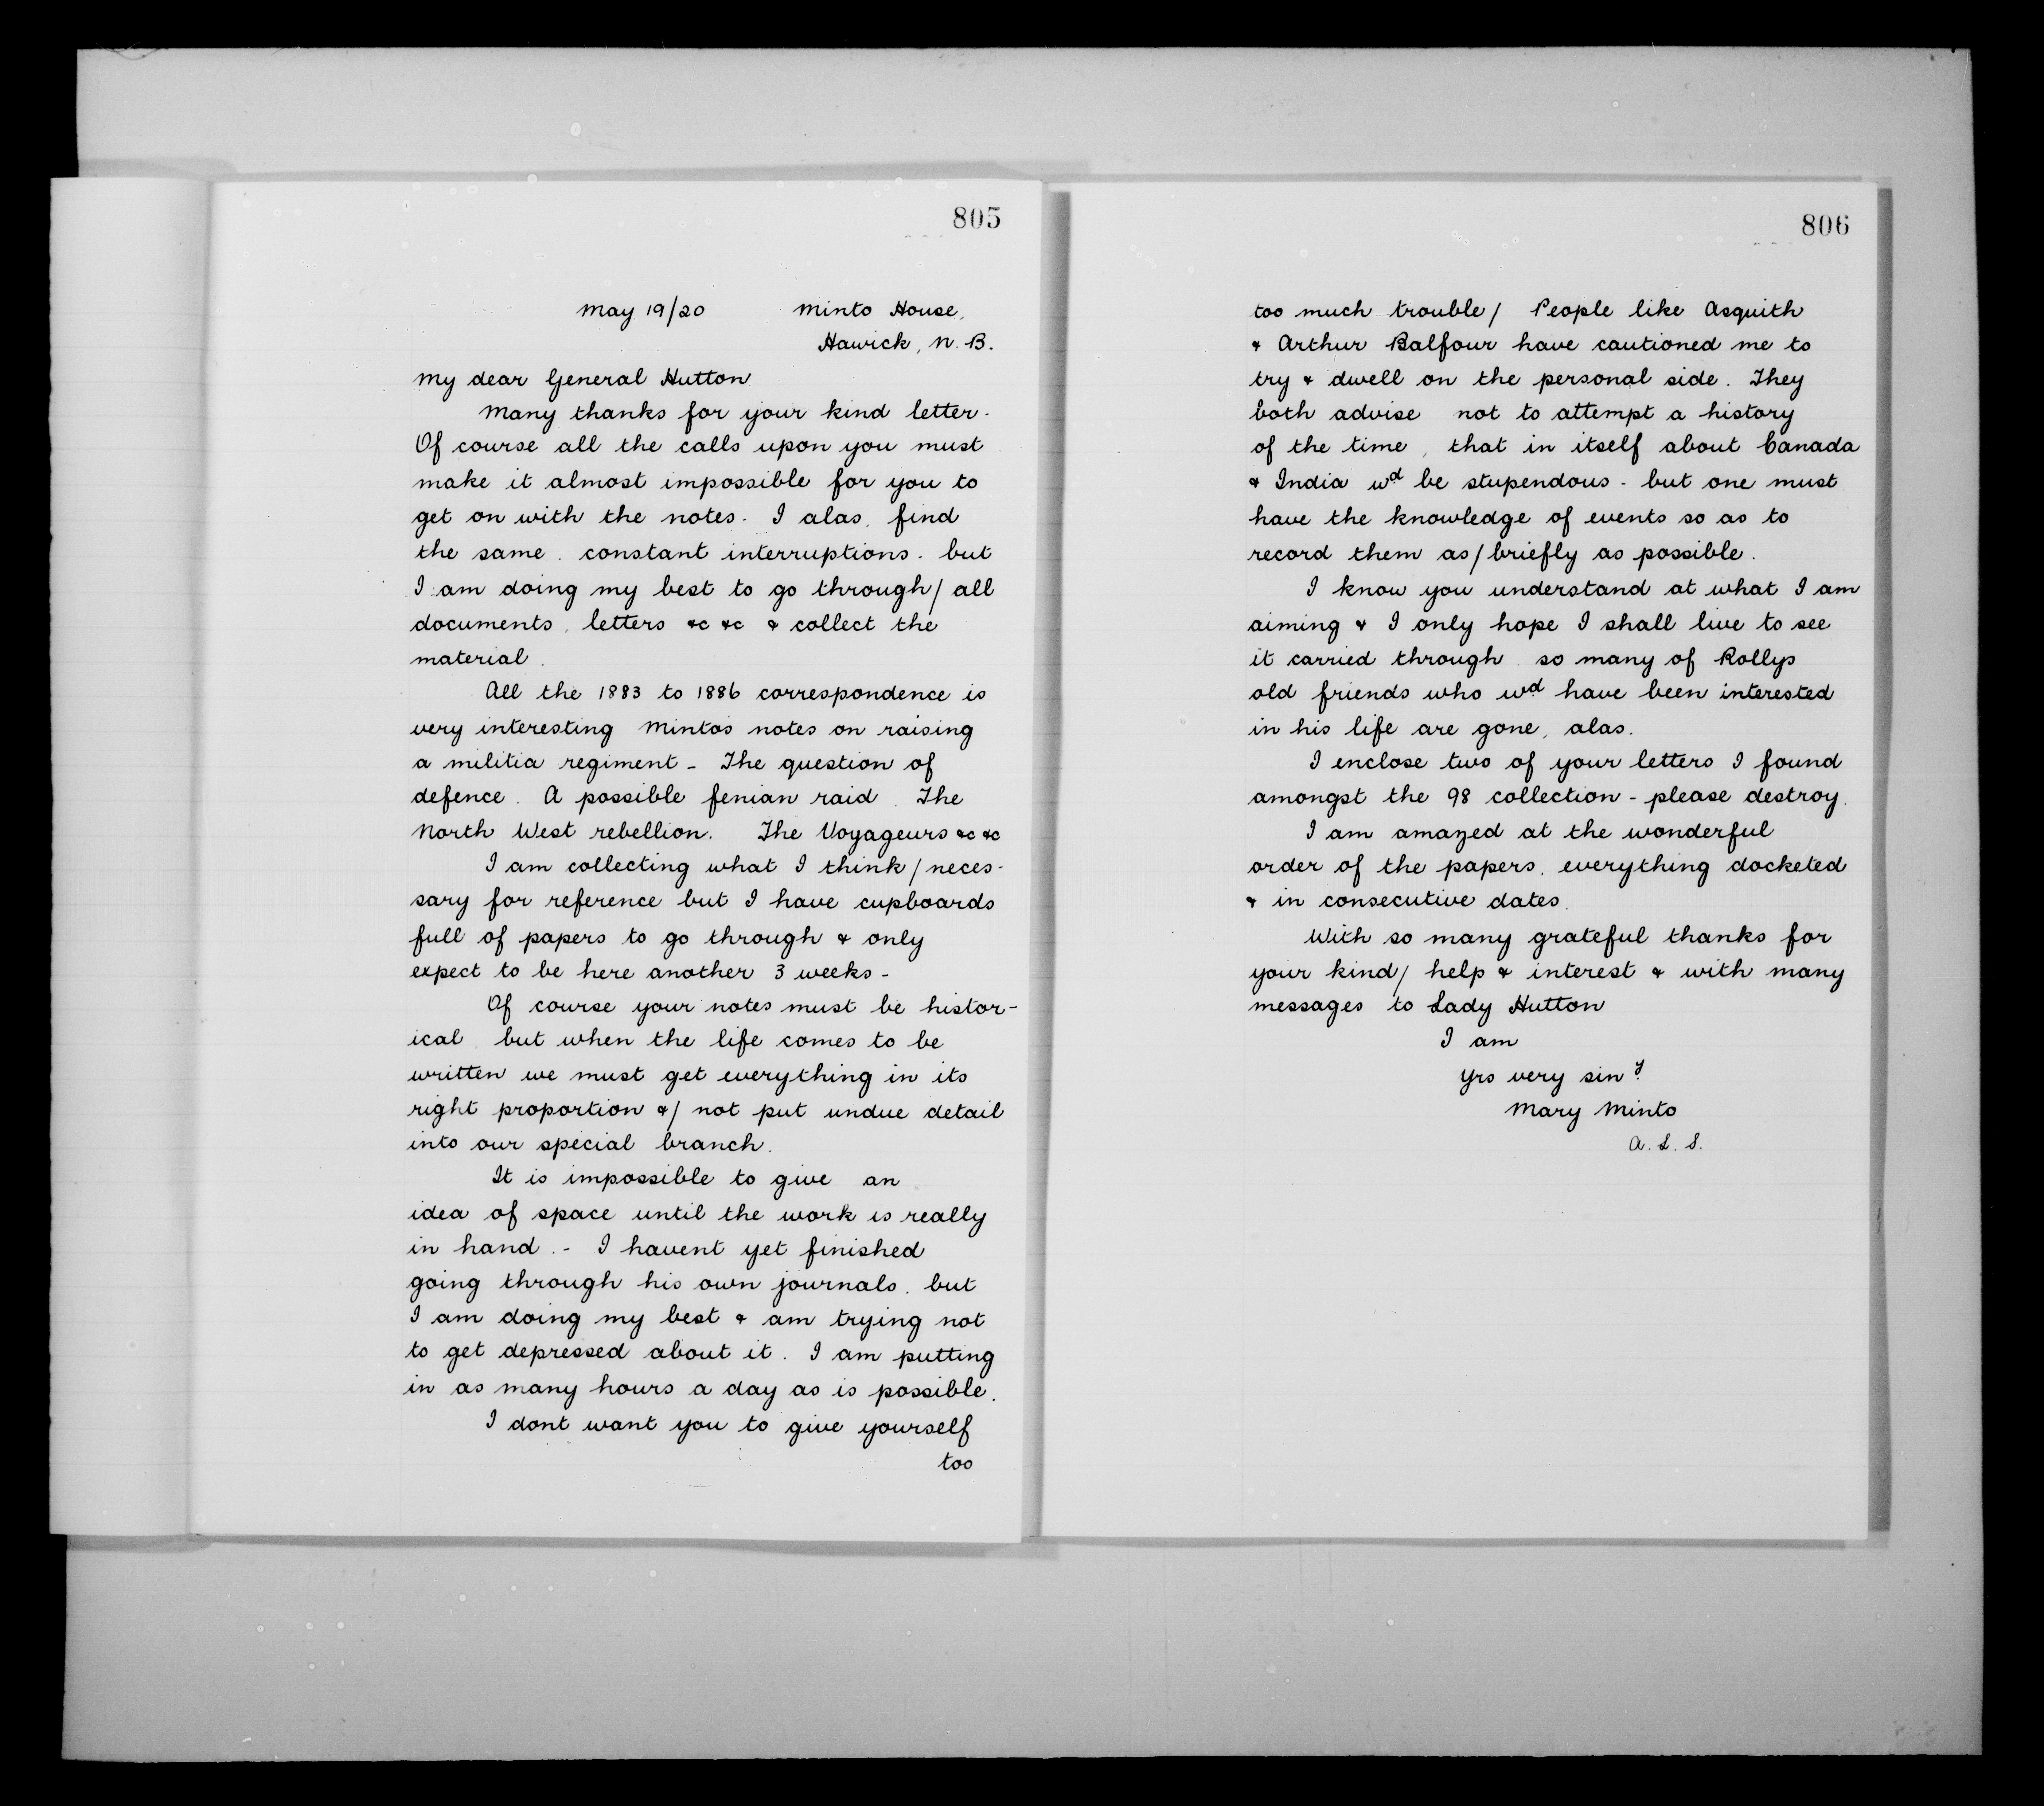 805
May 19/20 Minto House,
Hawick, N. B.
My dear General Hutton
Many thanks for your kind letter.
Of course all the calls upon you must
make it almost impossible for you to
get on with the notes. I alas, find
the same. constant interruptions. but
I am doing my best to go through/ all
documents, letters &c &c & collect the
material.
All the 1883 to 1886 correspondence is
very interesting Minto's notes on raising
a militia regiment - The question of
defence. A possible fenian raid. The
North West rebellion. The Voyageurs &c &c
I am collecting what I think/ neces-
sary for reference but I have cupboards
full of papers to go through & only
expect to be here another 3 weeks -
Of course your notes must be histor-
ical but when the life comes to be
written we must get everything in its
right proportion &/ not put undue detail
into our special branch.
It is impossible to give an
idea of space until the work is really
in hand. - I havent yet finished
going through his own journals. but
I am doing my best & am trying not
to get depressed about it. I am putting
in as many hours a day as is possible.
I dont want you to give yourself
too
806
too much trouble/ People like Asquith
& Arthur Balfour have cautioned me to
try & dwell on the personal side. They
both advise not to attempt a history
of the time, that in itself about Canada
& India wd be stupendous - but one must
have the knowledge of events so as to
record them as/ briefly as possible.
I know you understand at what I am
aiming & I only hope I shall live to see
it carried through. so many of Rollys
old friends who wd have been interested
in his life are gone, alas.
I enclose two of your letters I found
amongst the 98 collection - please destroy.
I am amazed at the wonderful
order of the papers. everything docketed
& in consecutive dates.
With so many grateful thanks for
your kind/ help & interest & with many
messages to Lady Hutton
I am
Yrs very siny.
Mary Minto
A. L. S.